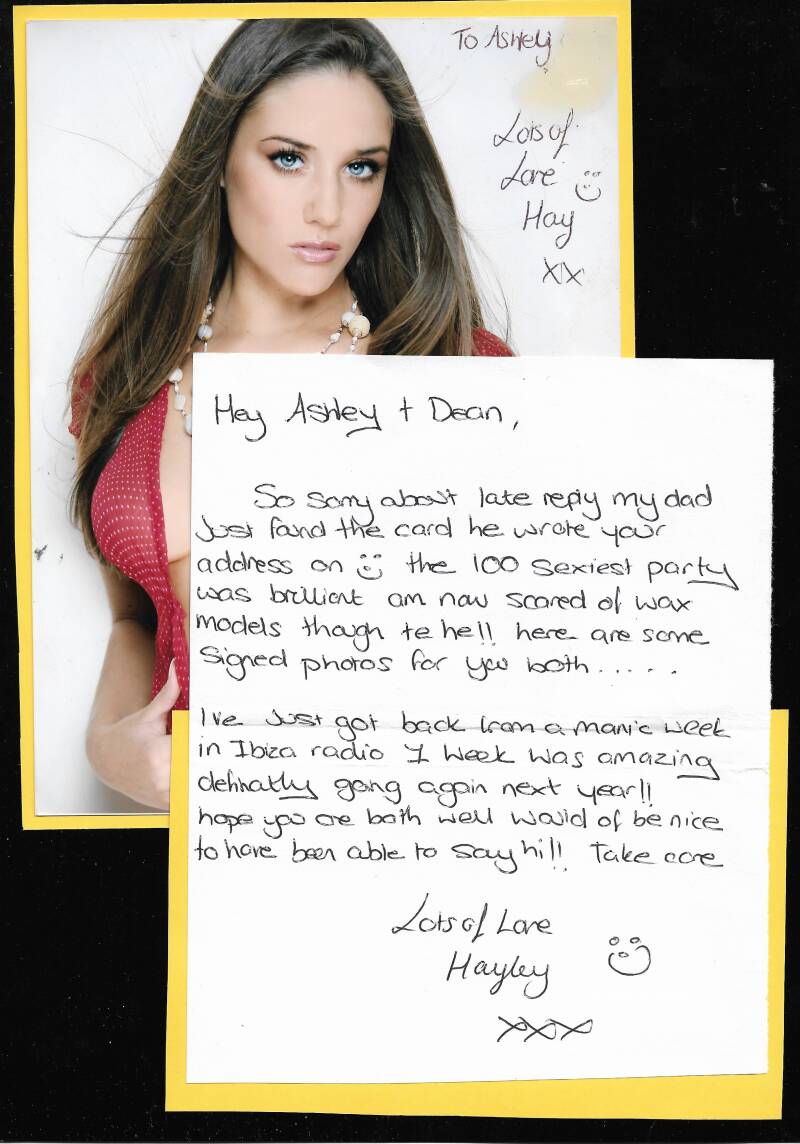 To Ashley
Lots of
Love
Hay
XX
Hey Ashley + Dean,
So sorry about late reply my dad
Just found the card he wrote your
address on the 100 sexiest party
was brilliant am now scared of wax
models though te he!! here are some
Signed photos for you both.....
I've Just got back from a manic week
in Ibiza radio 1 week was amazing
definatly going again next year!!
hope you are both well would of be nice
to have been able to say hi!! Take care
Lots of Love
Hayley
XXX